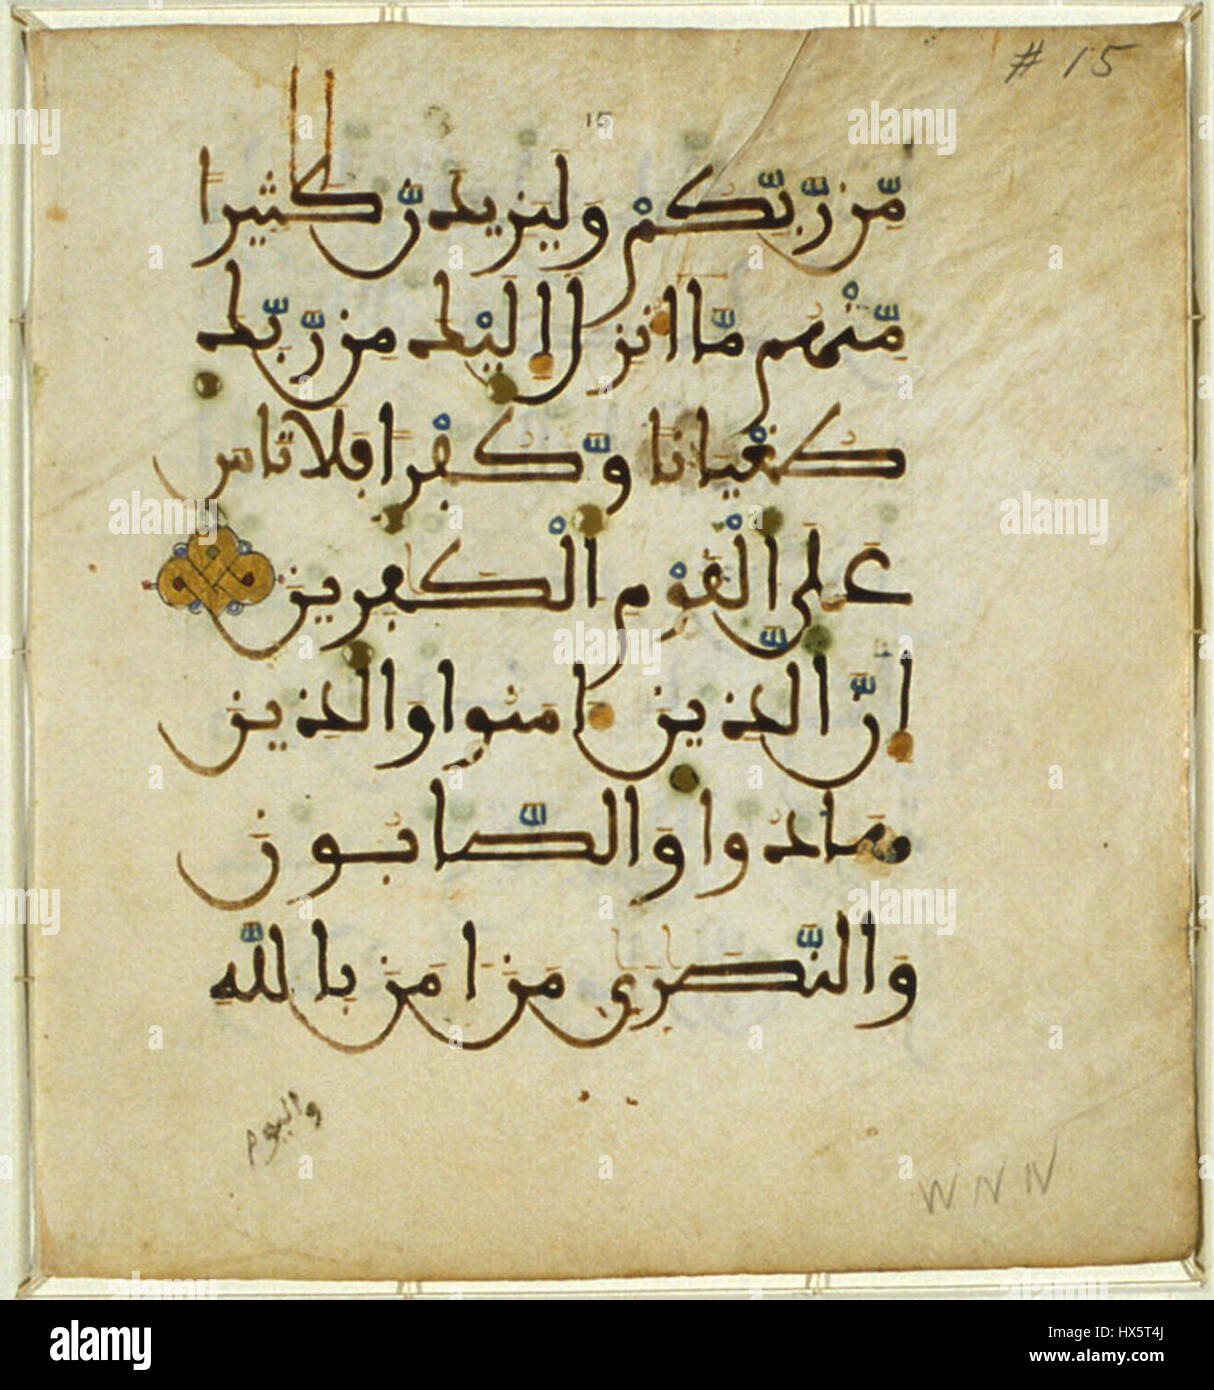 # 15
15
مِّن رَّبِّكُمْ وَلَيَزِيدَنَّ كَثِيرًا
مِّنْهُم مَّا أُنزِلَ إِلَيْكَ مِن رَّبِّكَ
طُغْيَانًا وَّكُفْرًا فَلَا تَاسَ
عَلَى الْقَوْمِ الْكَٰفِرِينَ
إِنَّ الَّذِينَ ءَامَنُوا وَالَّذِينَ
هَادُوا وَالصَّابُونَ
وَالنَّصَٰرَىٰ مَنَ امَنَ بِاللَّهِ
واليوم
W N N
alamy
HX5T4J
www.alamy.com